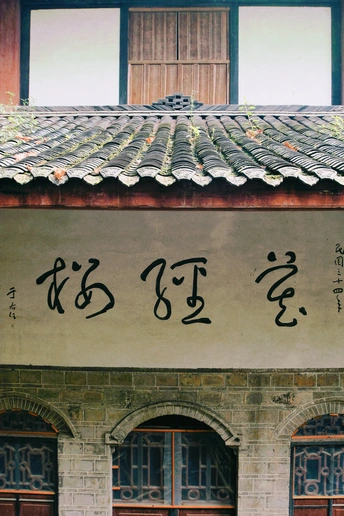 民國三十四年
藏經樓
于右任